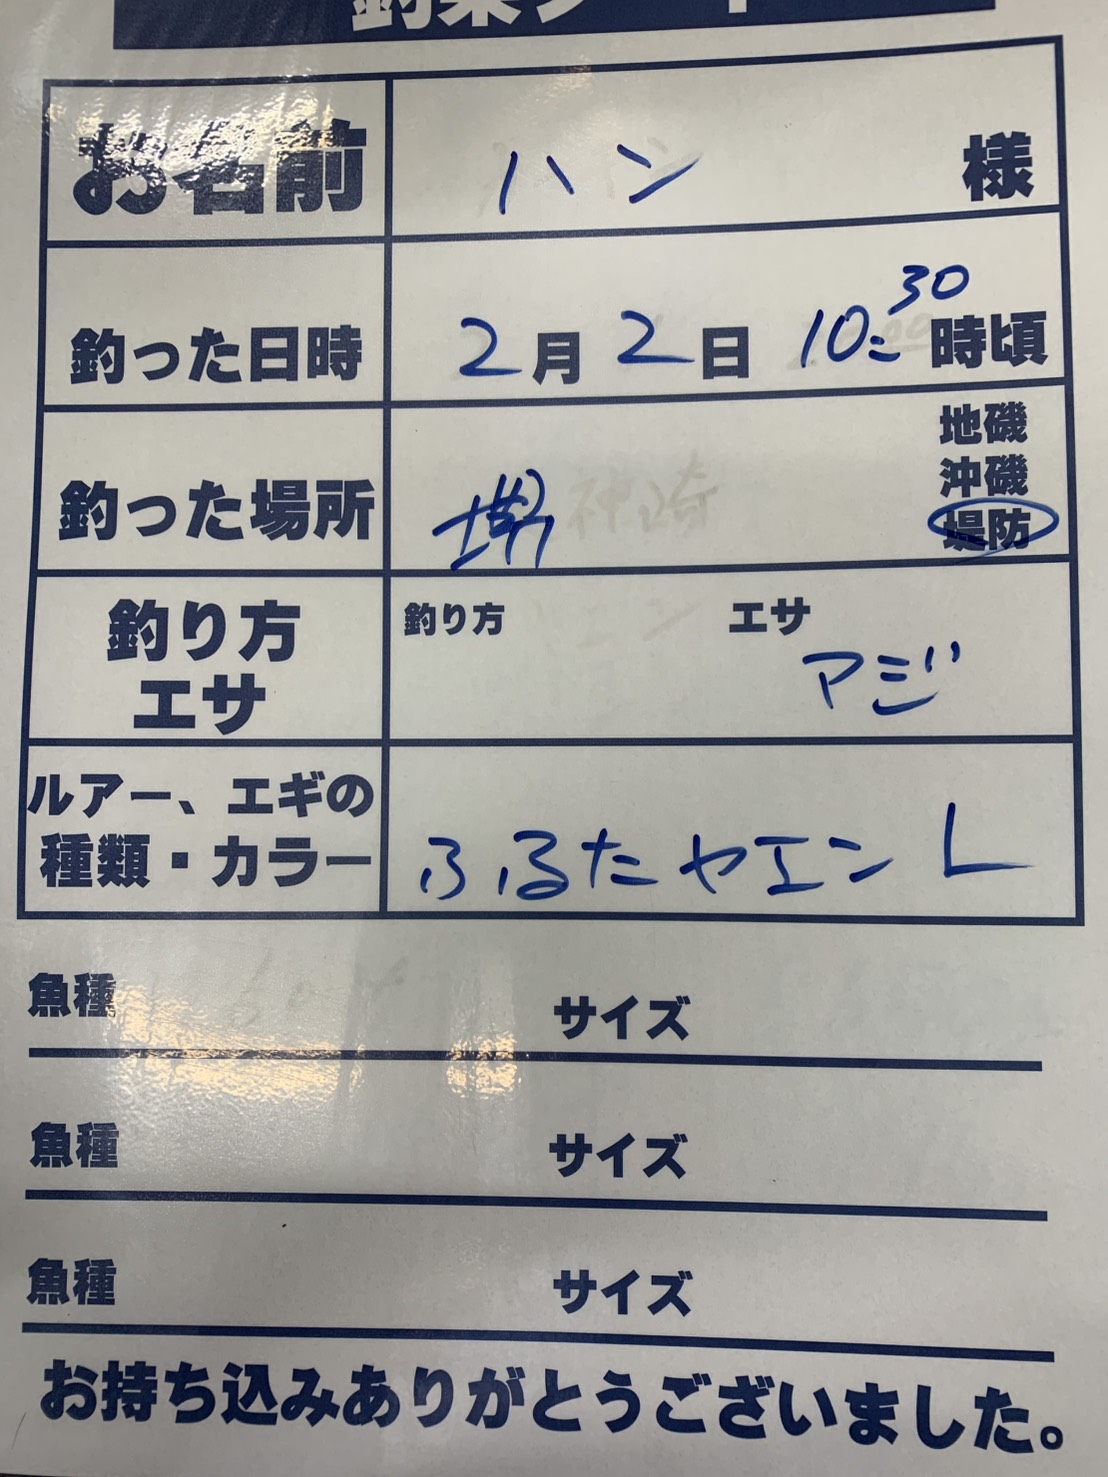 お名前 ハン 様
釣った日時 2月2日 10:30時頃
地磯
沖磯
釣った場所 堤防
釣り方 エサ
釣り方
エサ アジ
ルアー、エギの
種類・カラー ふるたヤエン L
魚種 サイズ
魚種 サイズ
魚種 サイズ
お持ち込みありがとうございました。